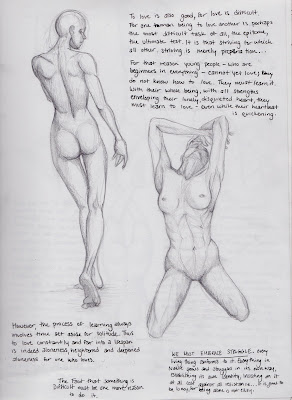 To love is also good, for love is difficult.
For one human being to love another is perhaps
the most difficult task of all, the epitome,
the ultimate test. It is that striving for which
all other striving is merely preparation...
For that reason young people - who are
beginners in everything - cannot yet love; they
do not know how to love. They must learn it.
With their whole being, with all strengths
enveloping their lonely, disquieted heart, they
must learn to love - even while their heartbeat
is quickening.
However, the process of learning always
involves time set aside for solitude. Thus
to love constantly and far into a lifespan
is indeed aloneness, heightened and deepened
aloneness for one who loves.
The fact that something is
difficult must be one more reason
to do it.
WE MUST EMBRACE STRUGGLE. every
living thing conforms to it. Everything in
nature grows and struggles in its own way,
establishing its own identity, insisting on it
at all cost, against all resistance... It is good to
be lonely, for being alone is not easy.